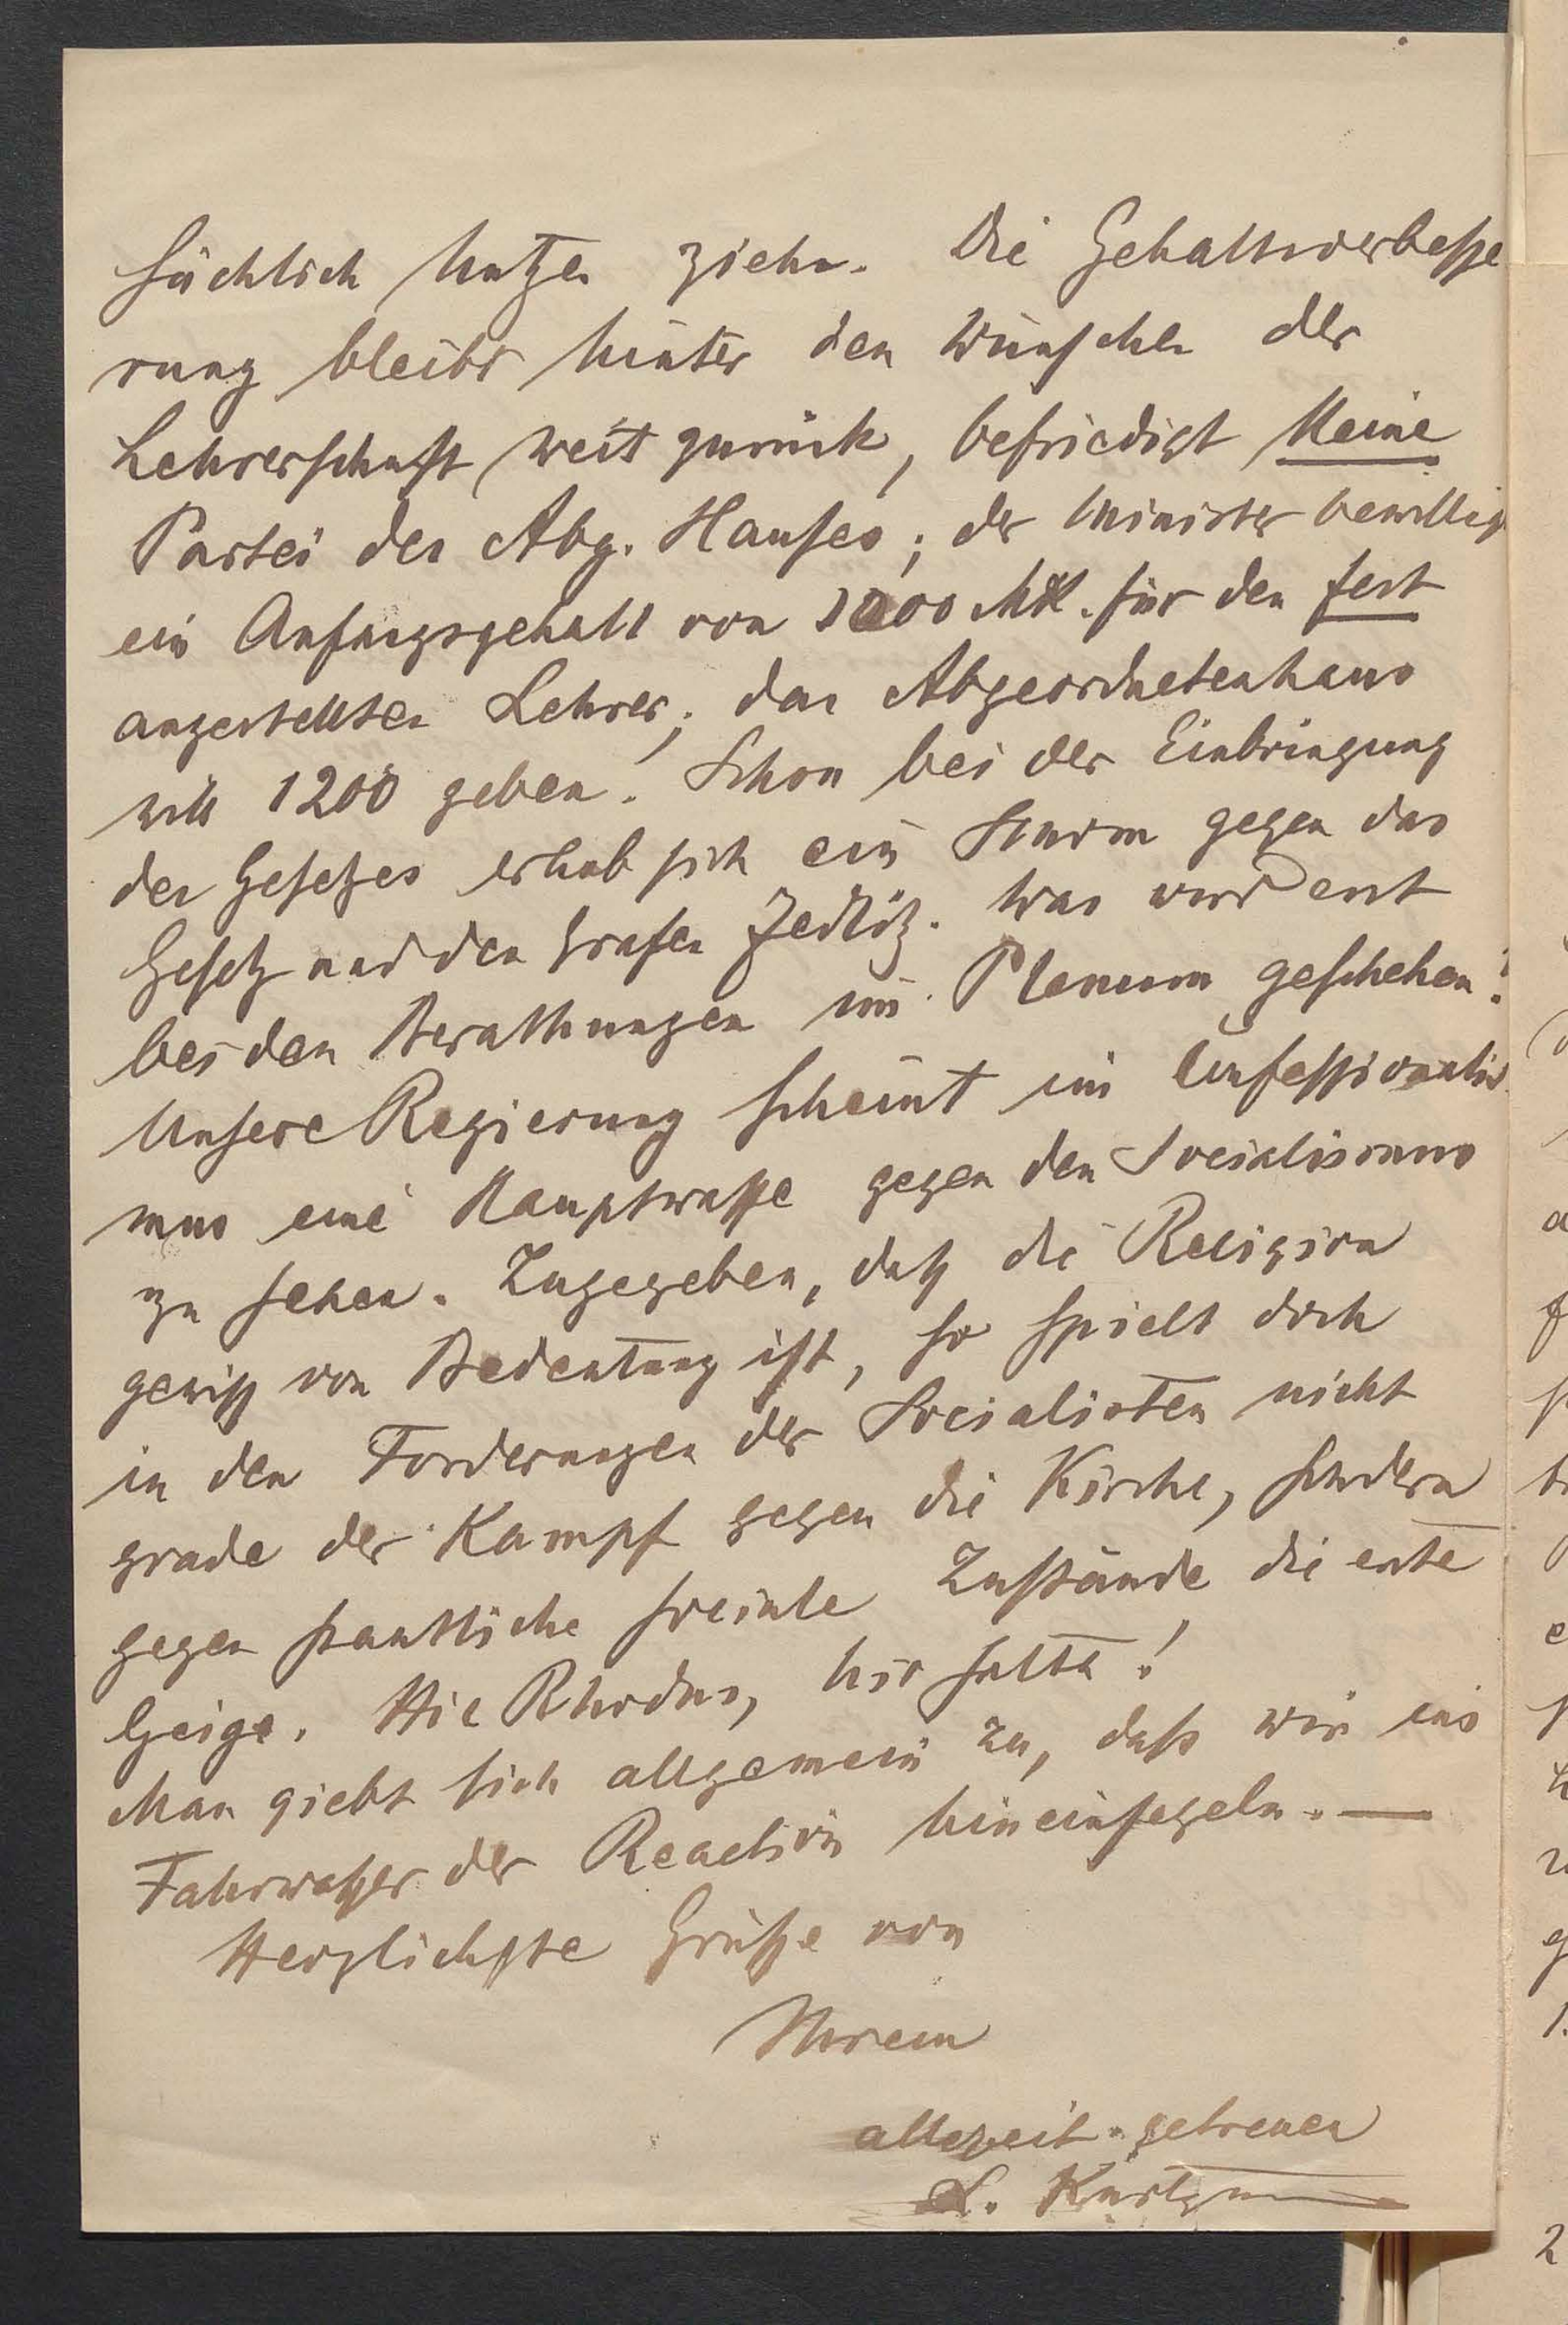 sächlich Nutzen ziehn. Die Gehaltsverbesse
rung bleibt hinter den Wünschen der
Lehrerschaft weit zurück, befriedigt keine
Partei des Abg. Hauses; der Minister bewillig
ein Anfangsgehalt von 1000 Mk. für den fest
angestellten Lehrer; das Abgeordnetenhaus
will 1200 geben. Schon bei der Einbringung
des Gesetzes erhob sich ein Sturm gegen das
Gesetz und den Grafen Zedlitz. Was wird erst
bei den Berathungen im Plenum geschehen?
Unsere Regierung scheint im Confessionalis
mus eine Hauptwaffe gegen den Socialismus
zu sehen. Zugegeben, daß die Religion
gewiß von Bedeutung ist, so spielt doch
in den Forderungen der Socialisten nicht
grade der Kampf gegen die Kirche, sondern
gegen staatliche sociale Zustände die erste
Geige. Hic Rhodus, hic salta!
Man giebt sich allgemein zu, dass wir ins
Fahrwasser der Reaction hineinsegeln. —
Herzlichste Grüße von
Ihrem
allezeit getreuen
L.